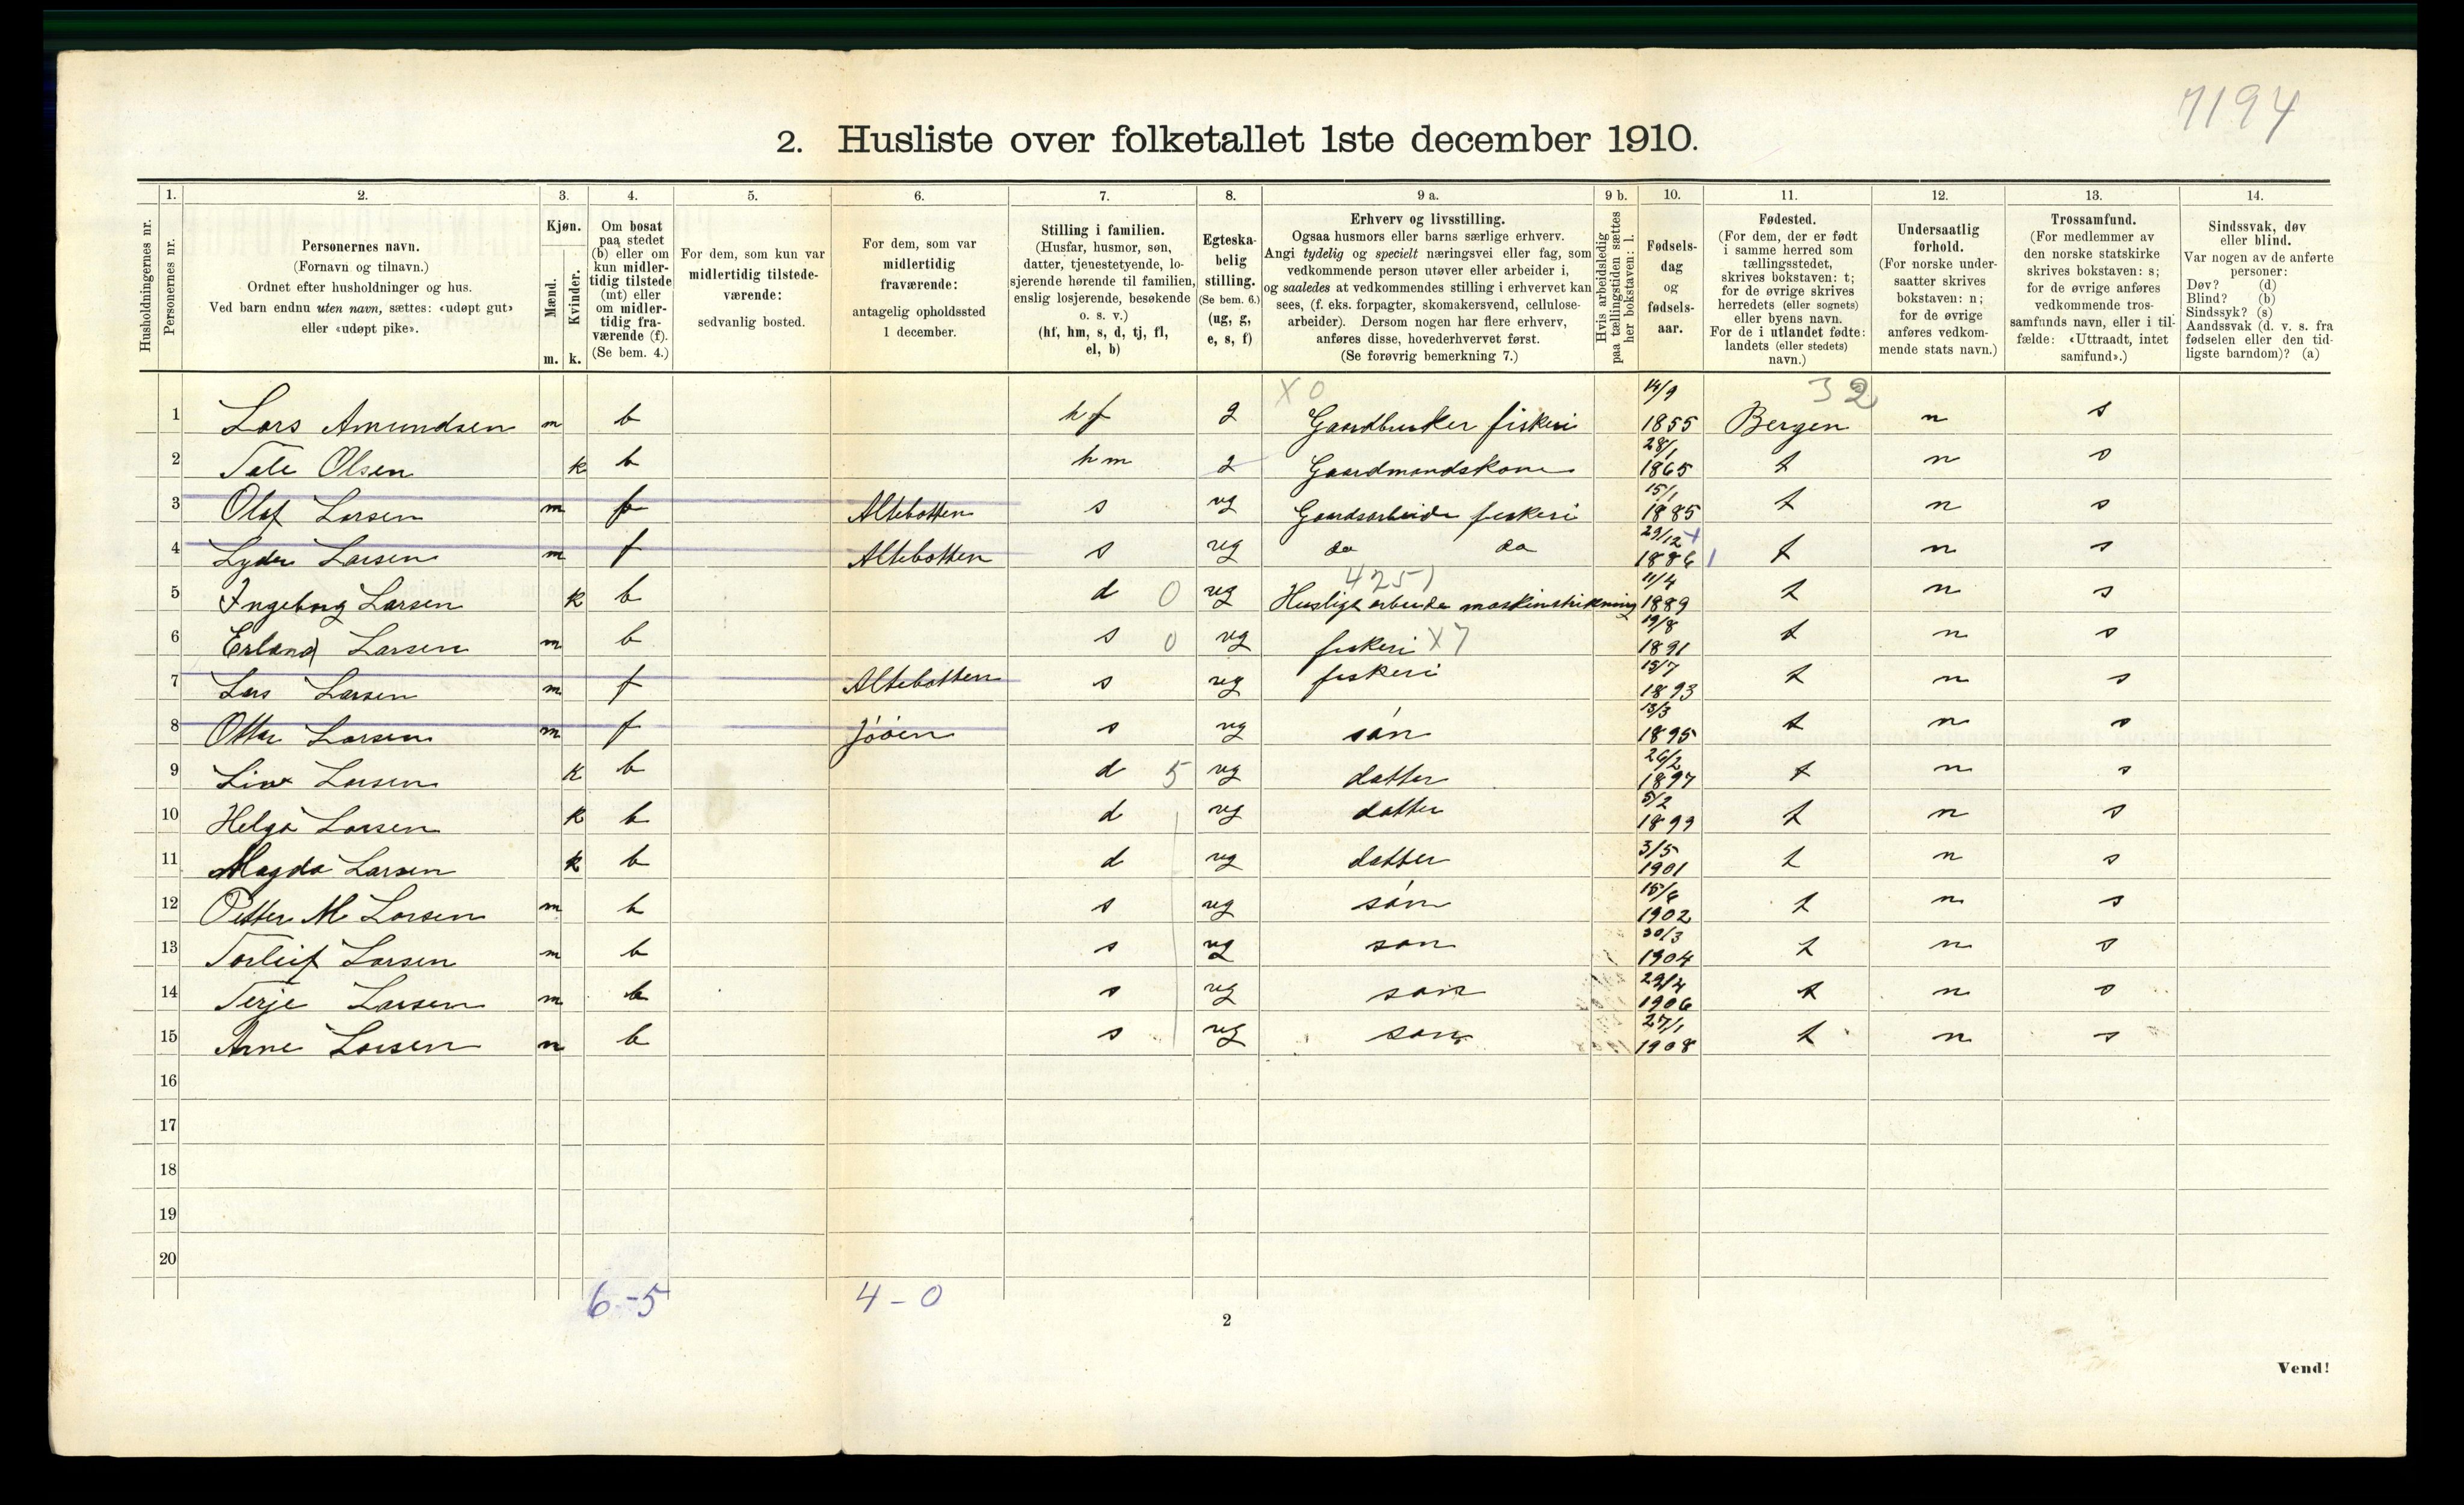 7194
2. Husliste over folketallet 1ste december 1910.
Husholdningernes nr.
1.
Personernes nr.
2.
Personernes navn.
(Fornavn og tilnavn.)
Ordnet efter husholdninger og hus.
Ved barn endnu uten navn, sættes: «udøpt gut»
eller «udøpt pike».
3.
Kjøn.
Mænd.
Kvinder.
m. k.
4.
Om bosat
paa stedet
(b) eller om
kun midler-
tidig tilstede
(mt) eller
om midler-
tidig fra-
værende (f).
(Se bem. 4.)
5.
For dem, som kun var
midlertidig tilstede-
værende:
sedvanlig bosted.
6.
For dem, som var
midlertidig
fraværende:
antagelig opholdssted
1 december.
7.
Stilling i familien.
(Husfar, husmor, søn,
datter, tjenestetyende, lo-
sjerende hørende til familien,
enslig losjerende, besøkende
o. s. v.)
(hf, hm, s, d, tj, fl,
el, b)
8.
Egteska-
belig
stilling.
(Se bem. 6.)
(ug, g,
e, s, f)
9 a.
Erhverv og livsstilling.
Ogsaa husmors eller barns særlige erhverv.
Angi tydelig og specielt næringsvei eller fag, som
vedkommende person utøver eller arbeider i,
og saaledes at vedkommendes stilling i erhvervet kan
sees, (f. eks. forpagter, skomakersvend, cellulose-
arbeider). Dersom nogen har flere erhverv,
anføres disse, hovederhvervet først.
(Se forøvrig bemerkning 7.)
9 b.
Hvis arbeidsledig
paa tællingstiden sættes
her bokstaven: l.
10.
Fødsels-
dag
og
fødsels-
aar.
11.
Fødested.
(For dem, der er født
i samme herred som
tællingsstedet,
skrives bokstaven: t;
for de øvrige skrives
herredets (eller sognets)
eller byens navn.
For de i utlandet fødte:
landets (eller stedets)
navn.)
12.
Undersaatlig
forhold.
(For norske under-
saatter skrives
bokstaven: n;
for de øvrige
anføres vedkom-
mende stats navn.)
13.
Trossamfund.
(For medlemmer av
den norske statskirke
skrives bokstaven: s;
for de øvrige anføres
vedkommende tros-
samfunds navn, eller i til-
fælde: «Uttraadt, intet
samfund».)
14.
Sindssvak, døv
eller blind.
Var nogen av de anførte
personer:
Døv? (d)
Blind? (b)
Sindssyk? (s)
Aandssvak (d. v. s. fra
fødselen eller den tid-
ligste barndom)? (a)
X 0 32
1 Lars Amundsen m b hf g Gaardbruker fiskeri 14/9 1855 Bergen n s
2 Tale Olsen k b hm g Gaardmandskone 28/1 1865 t n s
3 Olaf Larsen m f Altebotten s ug Gaardsarbeide fiskeri 15/1 1885 t n s
4 Lyder Larsen m f Altebotten s ug do do 29/12 1886 t n s
4251
5 Ingeborg Larsen k b d 0 ug Huslige arbeide maskinstrikning 11/4 1889 t n s
6 Erland Larsen m b s 0 ug fiskeri X7 19/8 1891 t n s
7 Lars Larsen m f Altebotten s ug fiskeri 15/7 1893 t n s
8 Ottar Larsen m f s ug søn 13/3 1895 t n s
9 Larsen k b d 5 ug datter 26/2 1897 t n s
10 Helga Larsen k b d ug datter 5/2 1899 t n s
11 Magda Larsen k b d ug datter 3/5 1901 t n s
12 Petter M Larsen m b s ug søn 15/6 1902 t n s
13 Torleif Larsen m b s ug søn 30/3 1904 t n s
14 Terje Larsen m b s ug søn 29/4 1906 t n s
15 Arne Larsen m b s ug søn 27/1 1908 t n s
16
17
18
19
20
6-5 4-0
2
Vend!